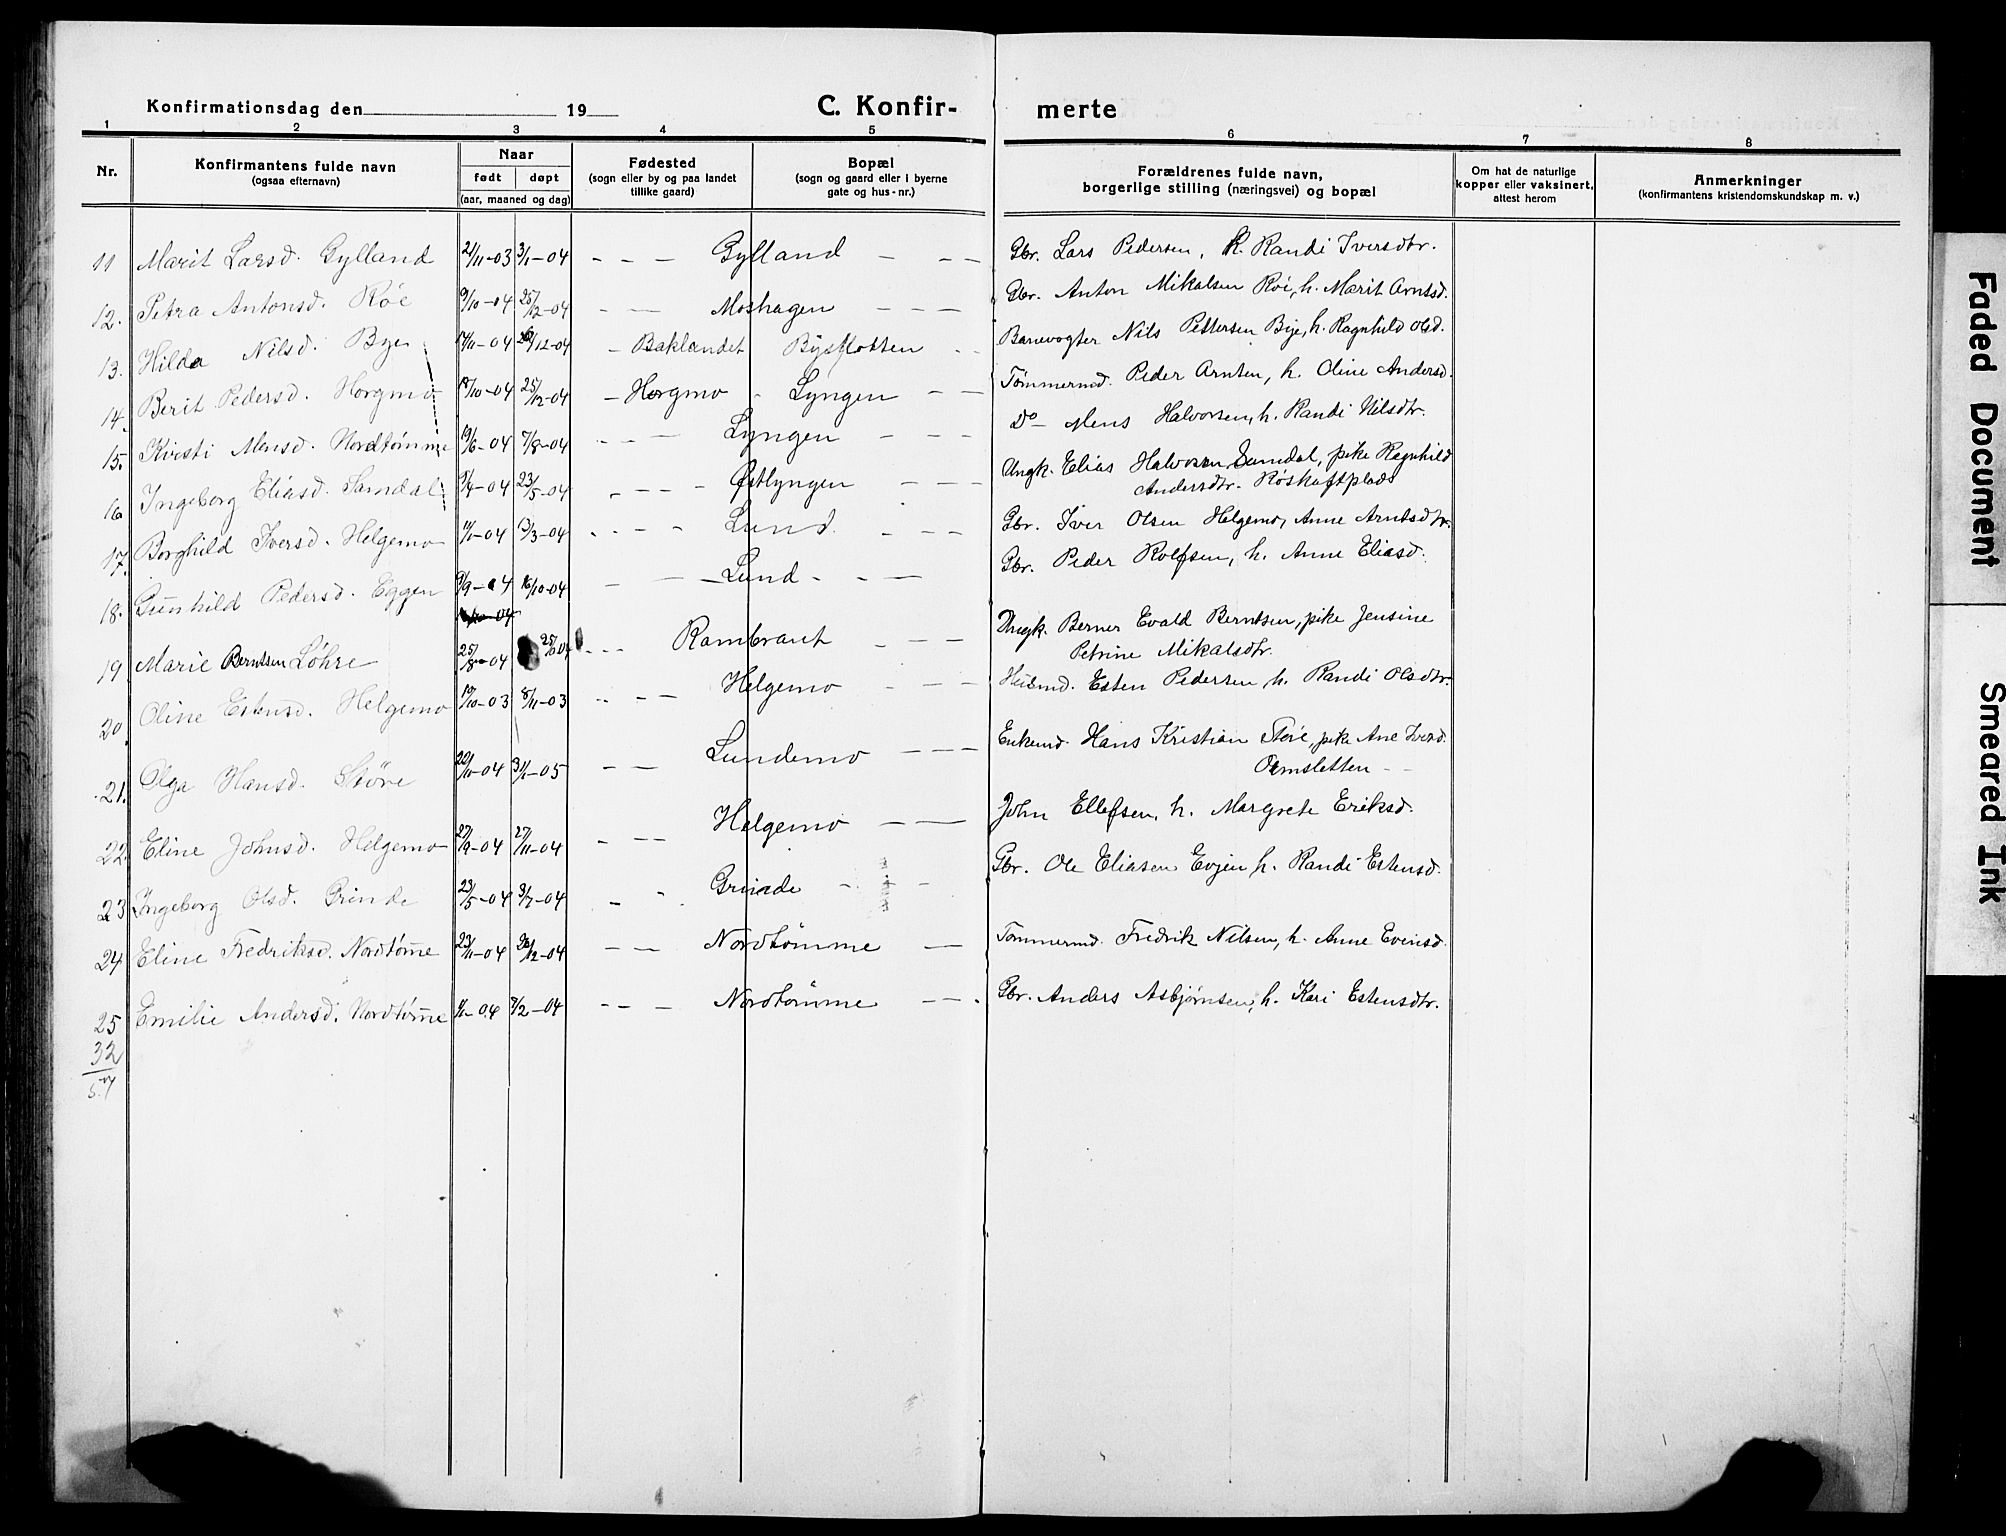 Konfirmationsdag den 19 C. Konfir- merte
1 2 3 4 5 6 7 8
Nr. Konfirmantens fulde navn (ogsaa efternavn) Naar født døpt (aar, maaned og dag) Fødested (sogn eller by og paa landet tillike gaard) Bopæl (sogn og gaard eller i byerne gate og hus-nr.) Forældrenes fulde navn, borgerlige stilling (næringsvei) og bopæl Om hat de naturlige kopper eller vaksinert, attest herom Anmerkninger (konfirmantens kristendomskundskap m. v.)
11 Marit Larsd. Gylland 21/11-03 3/1-04 - - - Gylland - - - Gbr. Lars Pedersen, h. Randi Iversdtr.
12. Petra Antonsd. Röe 9/10-04 25/12-04 - - Moshagen - - - Gbr. Anton Mikalsen Röi, h. Marit Arntsd.
13. Hilda Nilsd. Bye 17/11-04 26/12-04 - Baklandet Bysflotten - - Banevogter Nils Pettersen Bye, h. Ragnhild Olsd.
14. Berit Pedersd. Horgmo 18/10-04 25/12-04 - Horgmo - Lyngen - - Tømmermd. Peder Arntsen, h. Oline Andersd.
15. Kristi Mensd. Nordtömme 19/6-04 7/8-04 - - - Lyngen - - - Do - Mens Halvorsen, h. Randi Nilsdtr.
16 Ingeborg Eliasd. Samdal 9/4-04 23/5-04 - - - Østlyngen - - - Ungk. Elias Halvorsen Samdal, pike Ragnhild
Andersdtr. Röskaftplads
17. Borghild Iversd. Helgemo 11/1-04 13/3-04 - - - - Lund. - - - Gbr. Iver Olsen Helgemo, Anne Arntsdtr.
18. Gunhild Pedersd. Eggen 9/9-04 16/10-04 - - - Lund - - - Gbr. Peder Rolfsen, h. Anne Eliasd.
19 Marie Berntsen Löhre 25/8-04 25/-04 - - - Rambraut - - - Ungk. Berner Evald Berntsen, pike Jensine
Petrine Mikalsdtr.
20. Oline Estensd. Helgemo 19/10-03 8/11-03 - - - Helgemo - - - Husmd. Esten Pedersen h. Randi Olsdtr.
21. Olga Hansd. Störe 22/10-04 31/1-05 - - Lundemo - - - Enkemd. Hans Kristian Störe, pike Ane Iversd.
Ormsletten - -
22. Eline Johnsd. Helgemo 27/9-04 27/11-04 - - - Helgemo - - John Ellefsen, h. Margrete Eriksd.
23 Ingeborg Olsd. Grinde 23/5-04 3/7-04 - - Grinde - - - Gbr. Ole Eliasen Evjen h. Randi Estensd.
24 Eline Fredriksd. Nordtömme 23/11-04 26/12-04 - - Nordtömme - Tømmermd. Fredrik Nilsen, h. Anne Evensd.
25 Emilie Andersd. Nordtömme 1/1-04 7/2-04 - - - Nordtömme - - . Gbr. Anders Asbjørnsen, h. Kari Estensdtr.
32
57
Faded Document
Smeared Ink